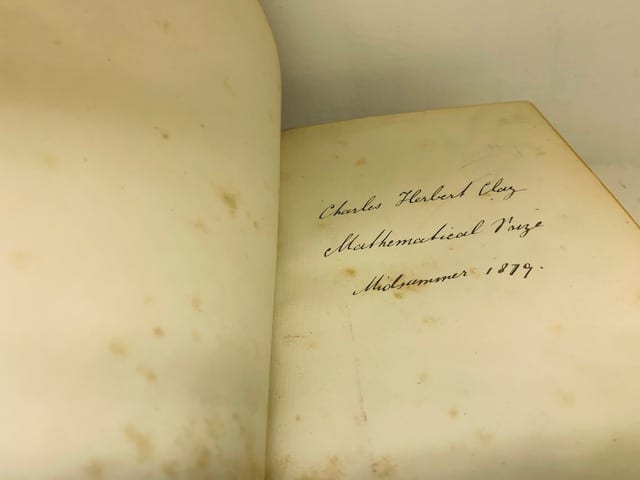 Charles Herbert Clay
Mathematical Prize
Midsummer 1879.